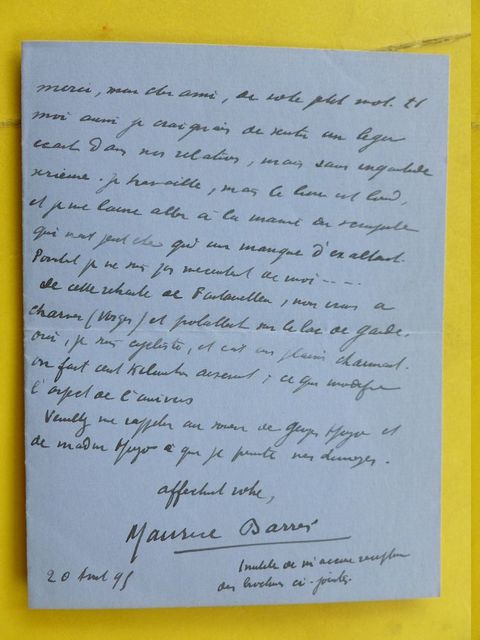 merci, mon cher ami, de votre petit mot. Et
moi aussi je craignais de sentir un léger
écart dans nos relations, mais sans inquiétude
sérieuse. je travaille, mais le livre est lourd,
et je me laisse aller à la manie du scrupule
qui n'est peut être qu'un manque d'exaltant.
Pourtant je ne suis pas mécontent de moi ----
de cette retraite de Fontainebleau, nous irons à
charmes (Vosges) et probablement sur le lac de garde.
oui, je suis cycliste, et c'est un plaisir charmant.
on fait cent kilomètres aisément ; ce qui modifie
l'aspect de l'univers
Veuillez me rappeler au souvenir de Georges Hugo et
de madame Hugo à qui je présente mes hommages.
affectueusement votre,
Maurice Barrès
Inutile de m'accuser réception
des brochures ci-jointes.
20 Avril 95